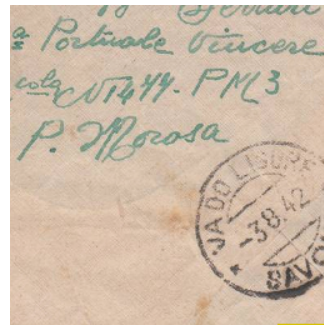 a Portuale Vincere
cola N 1477. PM 3
P. Morosa
VADO LIGURE
-3.8.42
SAVO